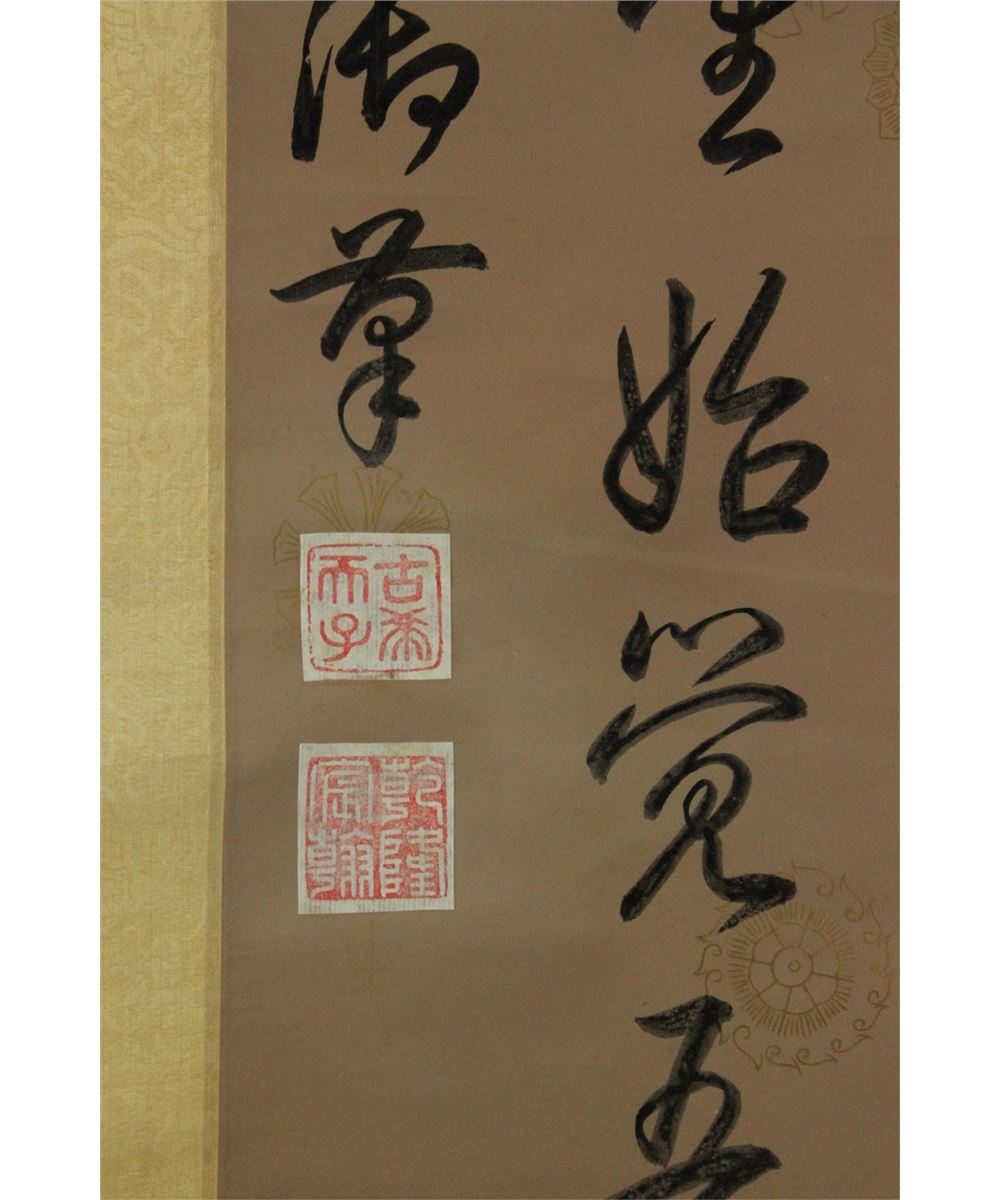 始覺五
御筆
古希天子
乾隆宸翰